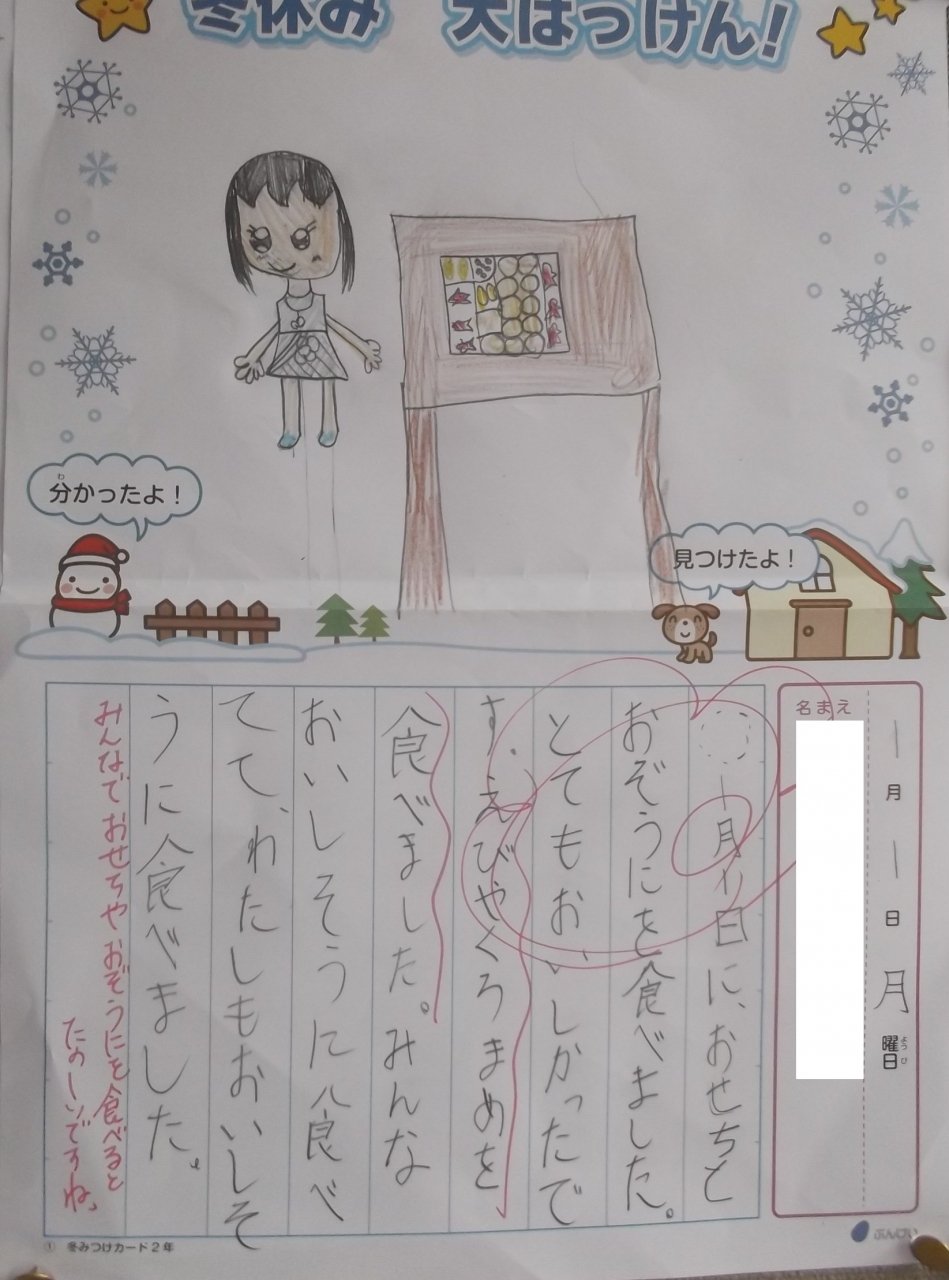 冬休み 大はっけん!
分かったよ!
わ
見つけたよ!
一月一日月曜日
ようび
名まえ
一月一日に、おせちと
おぞうにを食べました。
とてもおいしかったで
す。えびやくろまめを
食べました。みんな
おいしそうに食べ
てて、わたしもおいしそ
うに食べました。
みんなでおせちやおぞうにを食べると
たのしいですね。
① 冬みつけカード2年
ぶんけい